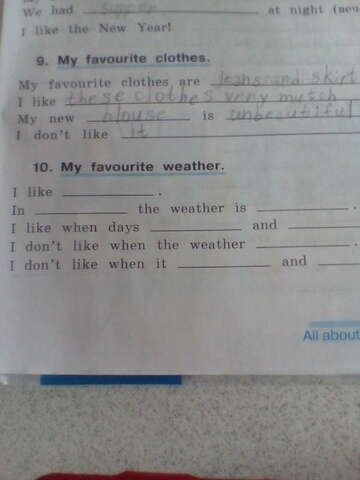 We had supper at night (neu
I like the New Year!
9. My favourite clothes.
My favourite clothes are Jeans and skirt
I like these clothes very mutch
My new blouse is unbeautiful
I don't like it
10. My favourite weather.
I like ________ .
In ________ the weather is ________ .
I like when days ________ and ____
I don't like when the weather ________ .
I don't like when it ________ and ____
All about